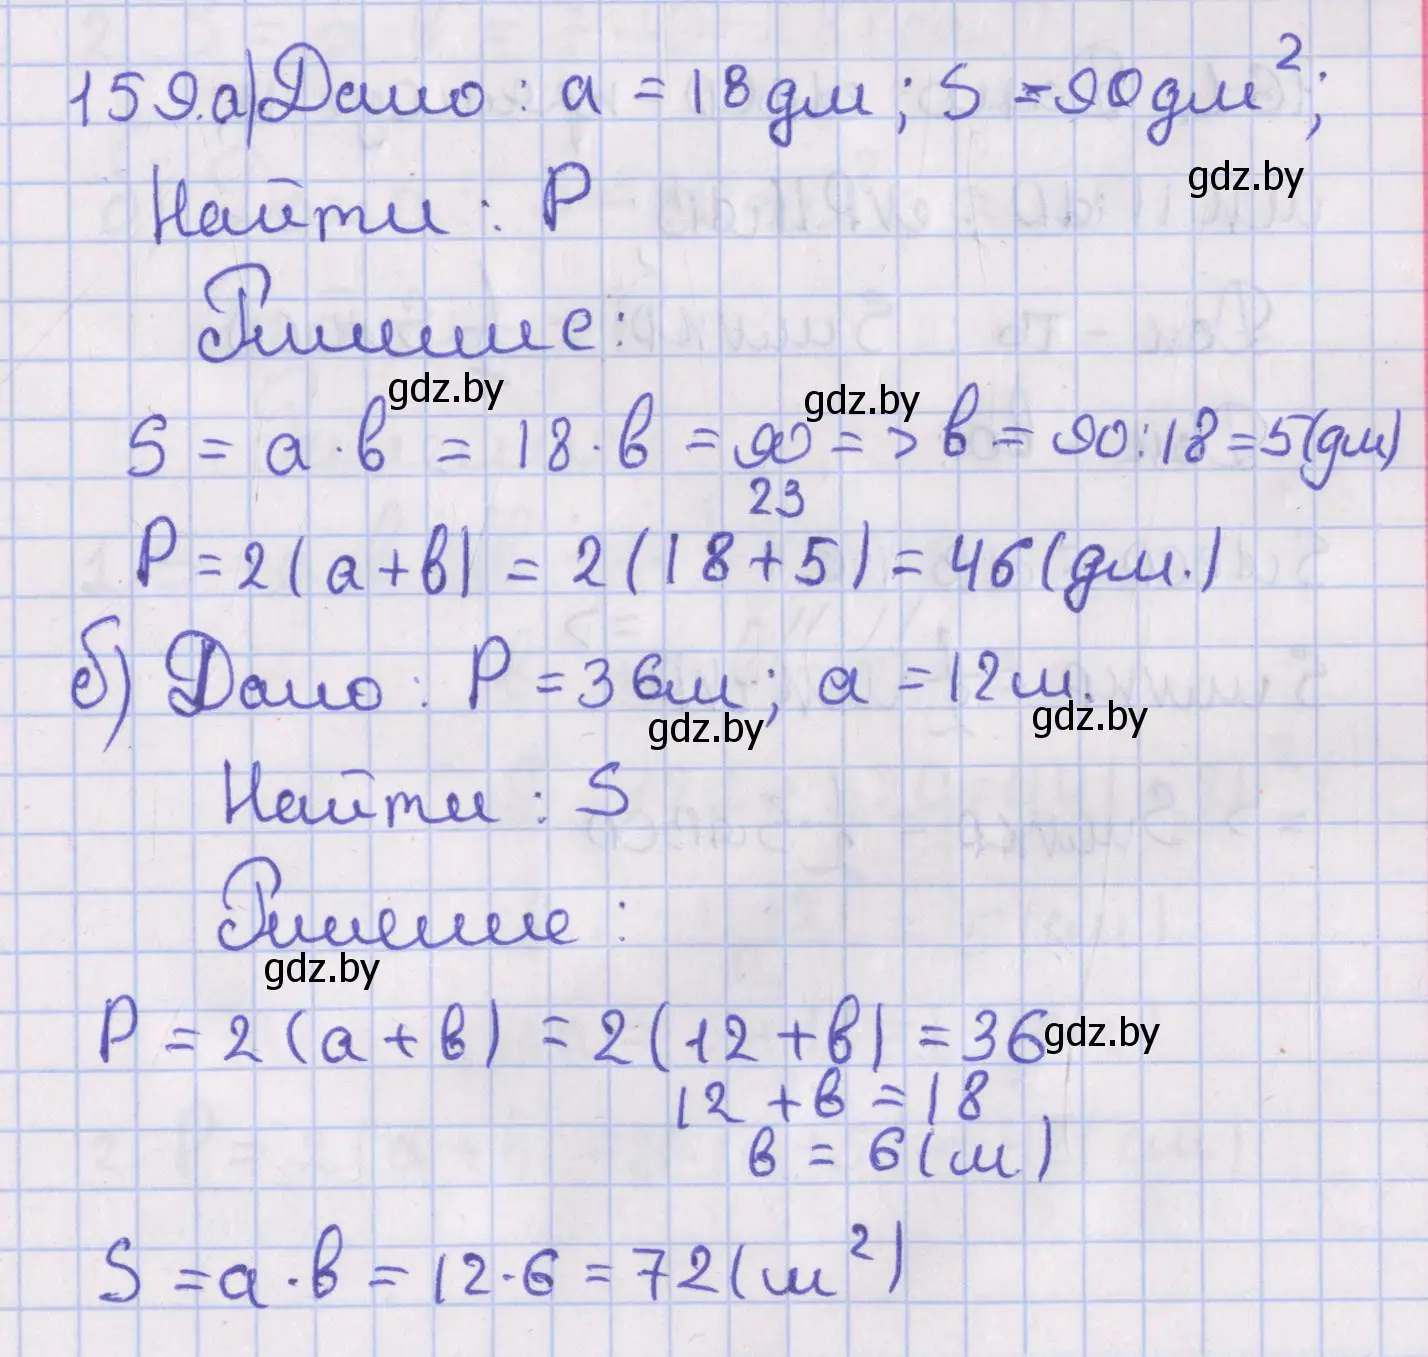 159.а) Дано: a = 18 дм; S = 90 дм²;
gdz.by
Найти: P
Решение:
gdz.by gdz.by
S = a · b = 18 · b = 90 => b = 90 : 18 = 5 (дм)
23
P = 2(a + b) = 2(18 + 5) = 46 (дм.)
б) Дано: P = 36 м; a = 12 м.
gdz.by gdz.by
Найти: S
Решение:
gdz.by
P = 2(a + b) = 2(12 + b) = 36 gdz.by
12 + b = 18
b = 6 (м)
S = a · b = 12 · 6 = 72 (м²)